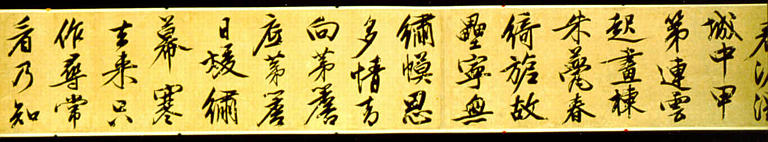 城中甲
第連雲
起畫棟
朱甍春
綺旎故
壘寧無
繡幙思
多情肯
向茅簷
底茅簷
日煖繡
幕寒
去来只
作尋常
看乃知